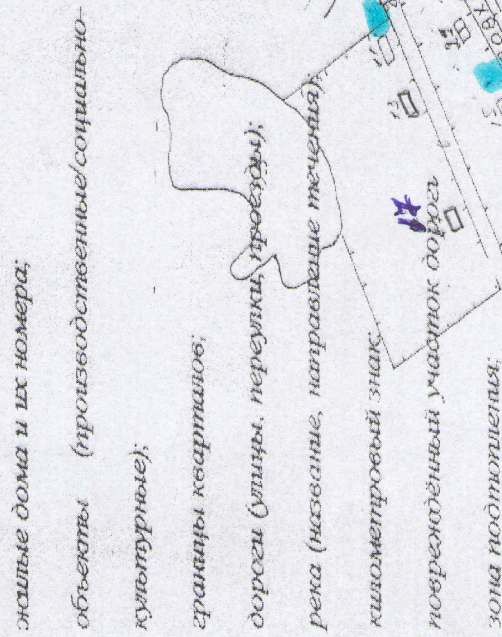 жилые дома и их номера;
объекты (производственные/социально-
культурные);
границы кварталов;
дороги (улицы, переулки, проезды);
река (название, направление течения);
километровый знак;
повреждённый участок дорога
зона подтопления;